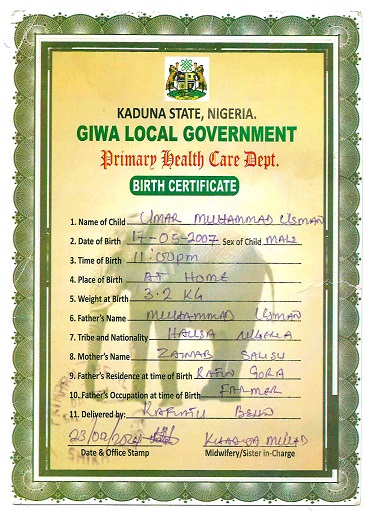 KADUNA STATE, NIGERIA.
GIWA LOCAL GOVERNMENT
Primary Health Care Dept.
BIRTH CERTIFICATE
1. Name of Child UMAR MUHAMMAD USMAN
2. Date of Birth 17-05-2007 Sex of Child MALE
3. Time of Birth 11:00pm
4. Place of Birth AT HOME
5. Weight at Birth 3.2 KG
6. Father's Name MUHAMMAD USMAN
7. Tribe and Nationality HAUSA
8. Mother's Name ZAINAB SALISU
9. Father's Residence at time of Birth GORA
10. Father's Occupation at time of Birth FARMER
11. Delivered by:
Date & Office Stamp Midwifery/Sister in-Charge